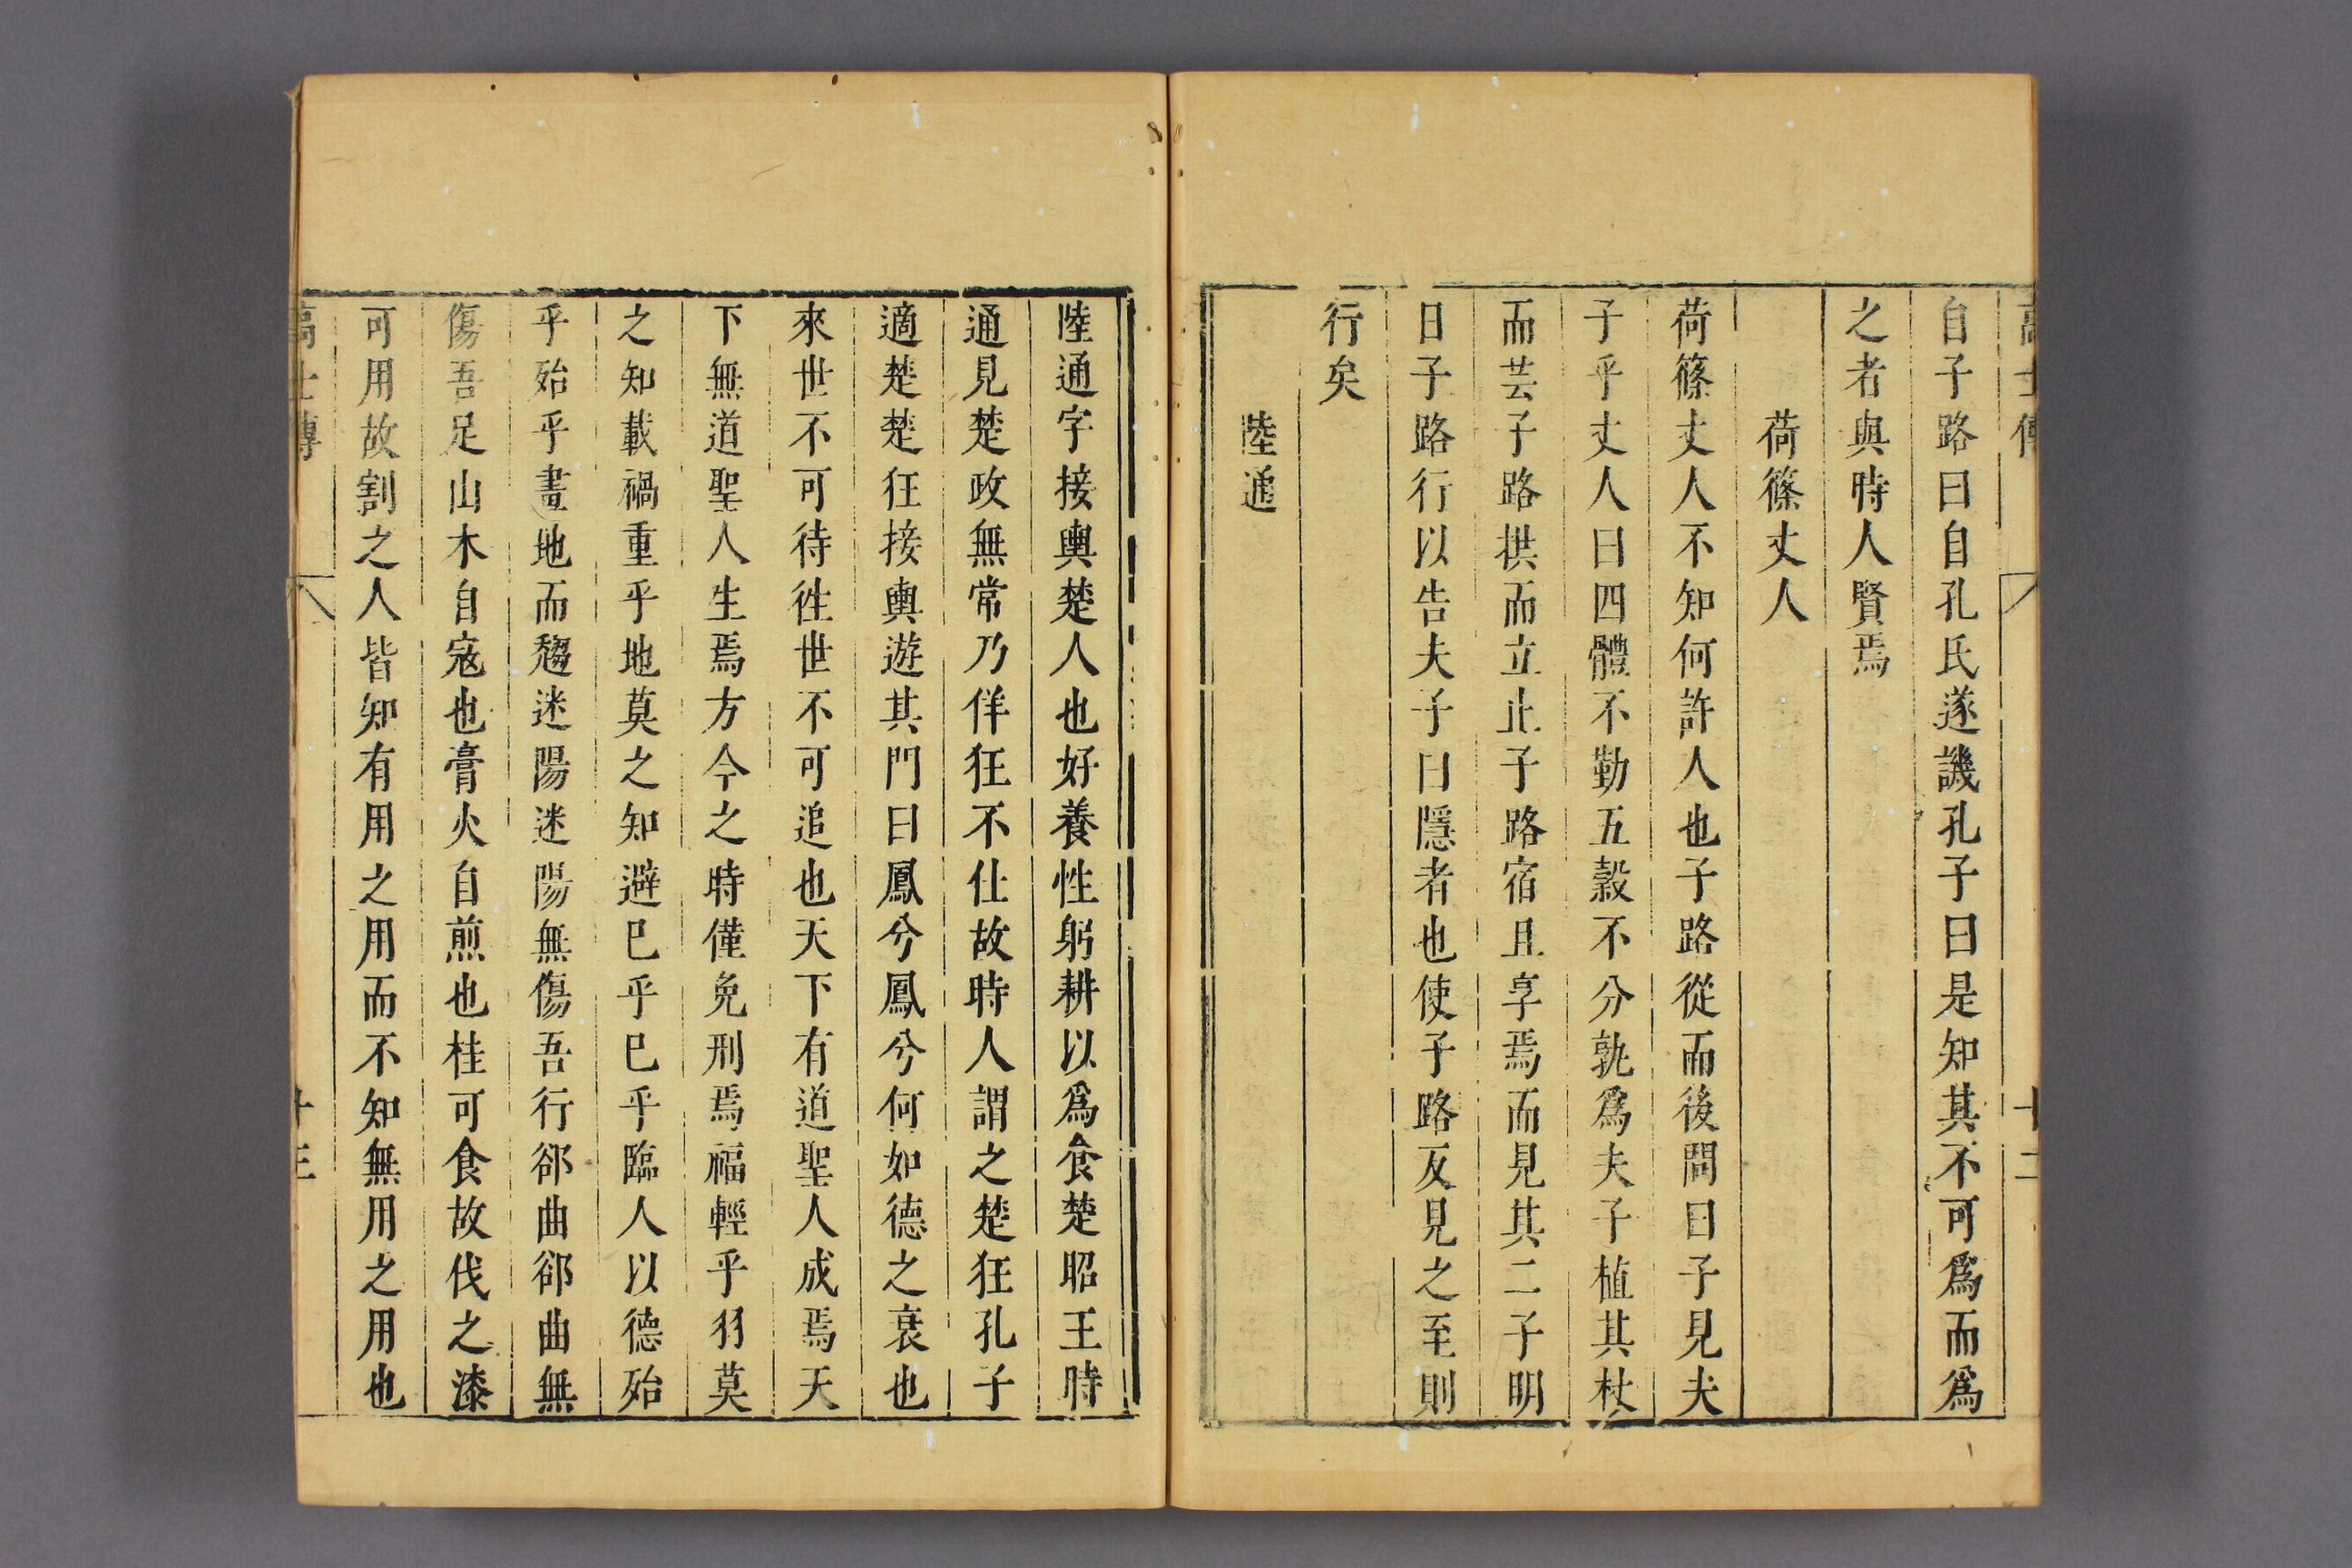 高士傳 十二
自子路曰自孔氏遂譏孔子曰是知其不可爲而爲
之者與時人賢焉
荷篠丈人
荷篠丈人不知何許人也子路從而後問曰子見夫
子乎丈人曰四體不勤五穀不分孰爲夫子植其杖
而芸子路拱而立止子路宿且享焉而見其二子明
日子路行以告夫子曰隱者也使子路反見之至則
行矣
陸通
陸通字接輿楚人也好養性躬耕以爲食楚昭王時
通見楚政無常乃佯狂不仕故時人謂之楚狂孔子
適楚楚狂接輿遊其門曰鳳兮鳳兮何如德之衰也
來世不可待徃世不可追也天下有道聖人成焉天
下無道聖人生焉方今之時僅免刑焉福輕乎羽莫
之知載禍重乎地莫之知避巳乎巳乎臨人以德殆
乎殆乎畫地而趨迷陽迷陽無傷吾行郤曲郤曲無
傷吾足山木自寇也膏火自煎也桂可食故伐之漆
可用故割之人皆知有用之用而不知無用之用也
高士傳 十三